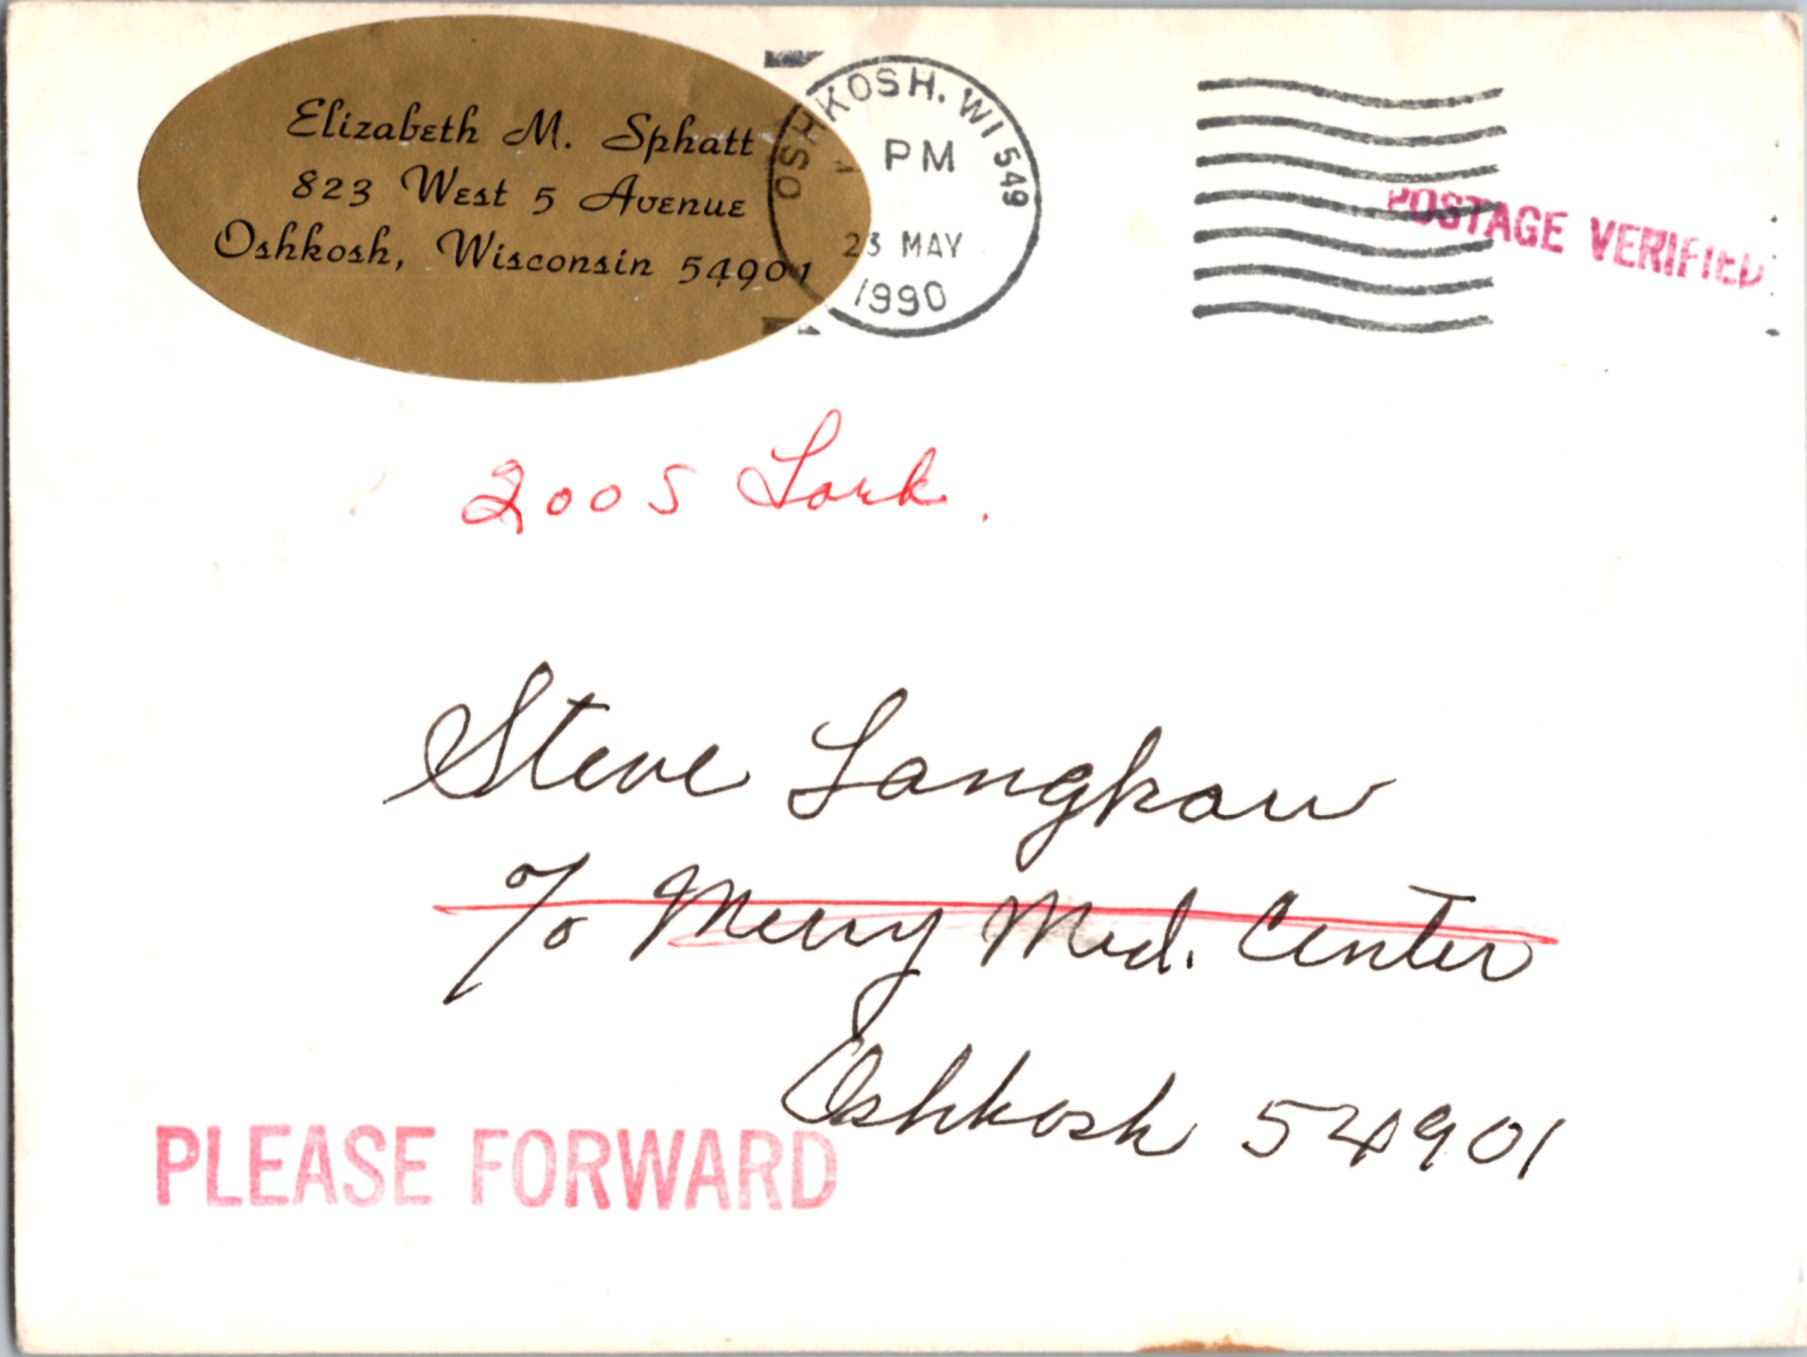 Elizabeth M. Sphatt
823 West 5 Avenue
Oshkosh, Wisconsin 54901
OSHKOSH, WI 549
PM
23 MAY
1990
POSTAGE VERIFIED
2005 Lark.
Steve Langkau
c/o Mercy Med. Center
Oshkosh 54901
PLEASE FORWARD